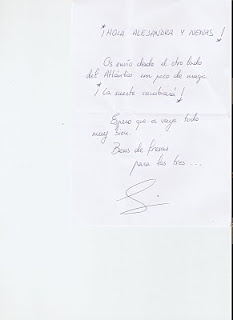 ¡HOLA ALEJANDRA Y NENAS!
Os envío desde el otro lado
del Atlántico un poco de magia.
¡La suerte cambiará!
Espero que os vaya todo
muy bien.
Besos de fresas
para las tres...